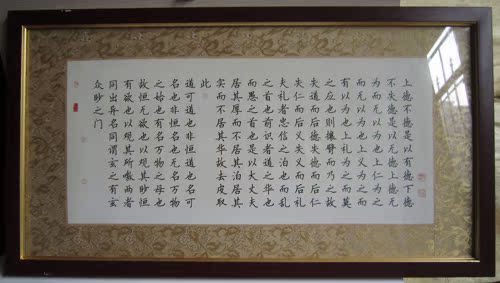 上德不德是以有德下德
不失德是以无德上德无
为而无以为也上仁为之
而无以为也上义为之而
有以为也上礼为之而莫
之应也则攘臂而乃之故
失道而后德失德而后仁
失仁而后义失义而后礼
夫礼者忠信之泊也而乱
之首也前识者道之华也
而愚之首也是以大丈夫
居其厚而不居其泊居其
实而不居其华故去皮取
此
道可道也非恒道也名可
名也非恒名也无名万物
之始也有名万物之母也
故恒无欲也以观其眇恒
有欲也以观其所噭两者
同出异名同谓玄之有玄
众眇之门